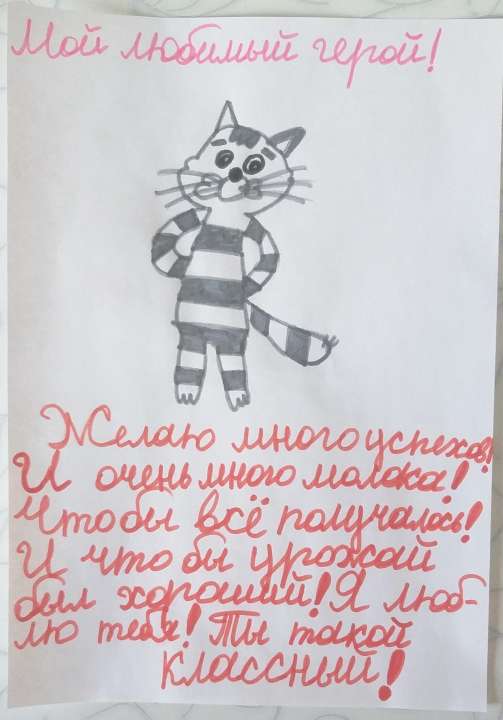 Мой любимый герой!
Желаю много успехов!
И очень много молока!
Чтобы всё получалось!
И что бы урожай
был хороший! Я люб-
лю тебя! Ты такой
классный!